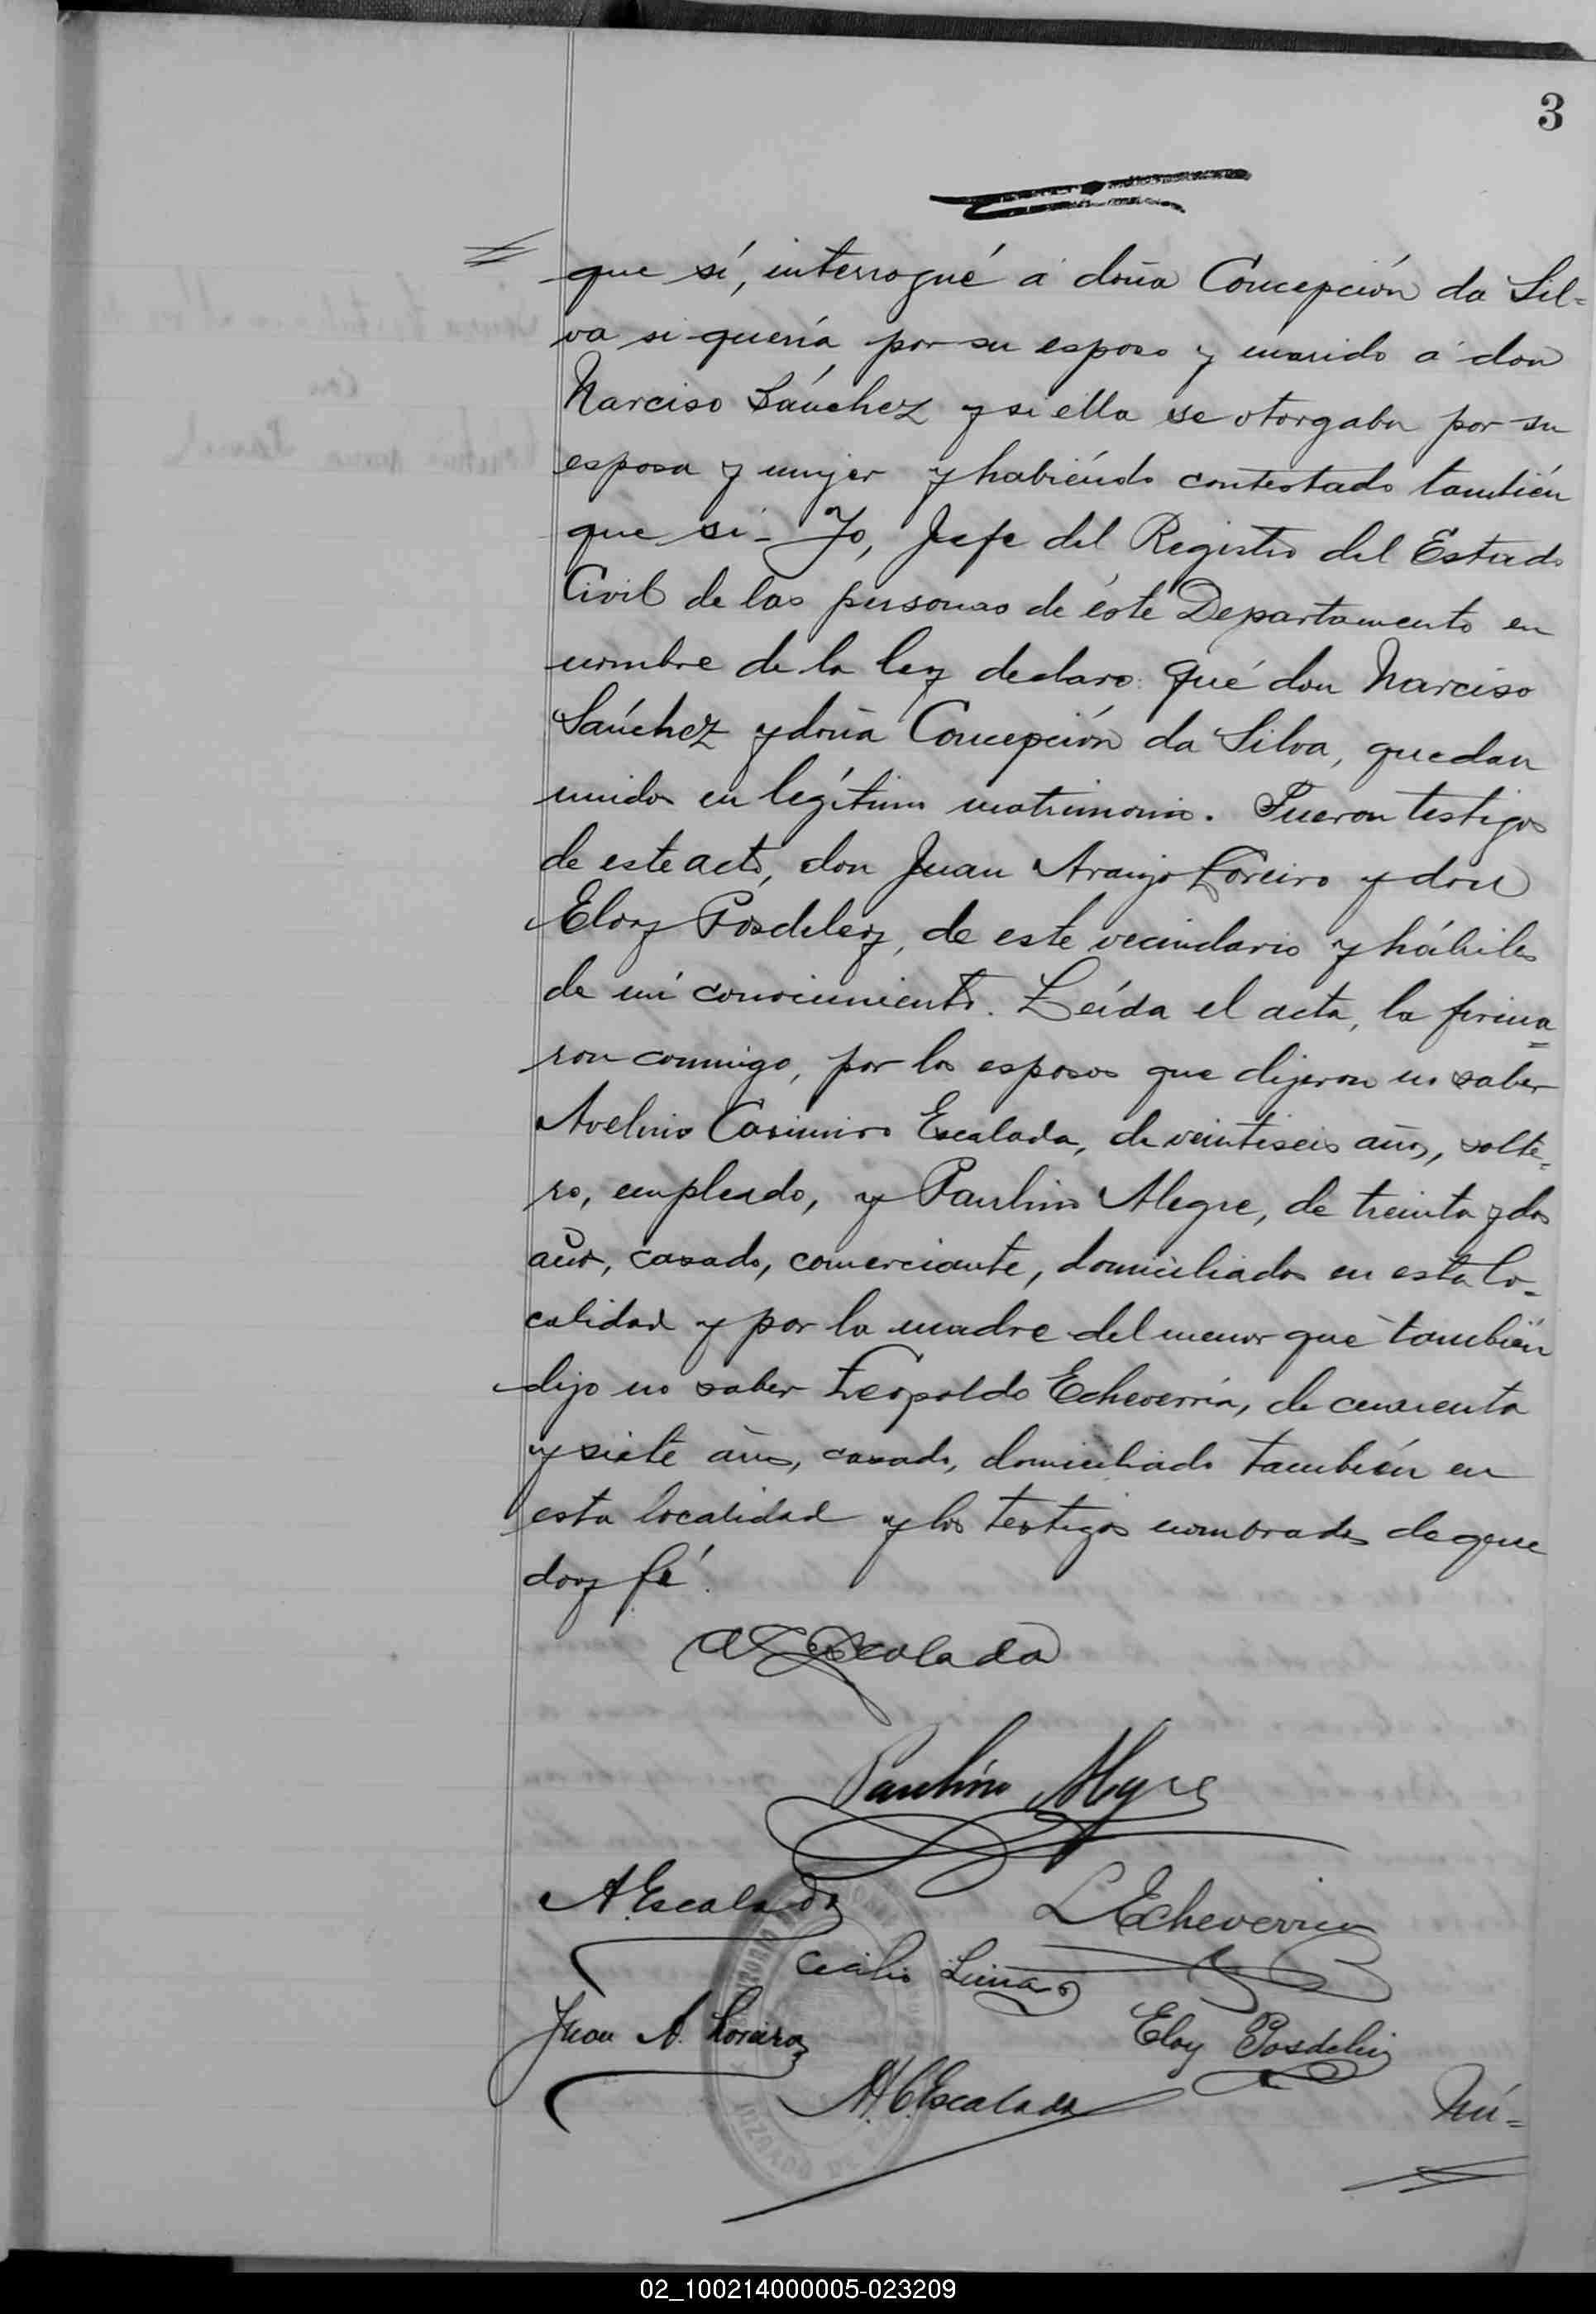 3
que sí, interrogué á doña Concepción da Sil=
va si quería por su esposo y marido á don
Narciso Sánchez y si ella se otorgaba por su
esposa y mujer y habiéndo contestado también
que si - Yo, Jefe del Registro del Estado
Civil de las personas de éste Departamento en
nombre de la ley declaro: Qué don Narciso
Sánchez y doña Concepción da Silva, quedan
unidos en legítimo matrimonio. Fueron testigos
de este acto, don Juan Araujo Loreiro y don
Eloy Posdeley, de este vecindario y hábiles
de mi conocimiento. Leída el acta, la firma=
ron conmigo, por los esposos que dijeron no saber
Avelino Casimiro Escalada, de veintiseis años, solte=
ro, empleado, y Paulino Alegre, de treinta y dos
años, casado, comerciante, domiciliados en esta lo=
calidad y por la madre del menor que también
dijo no saber Leopoldo Echeverría, de cuarenta
y siete años, casado, domiciliado también en
esta localidad y los testigos nombrados de que
doy fé.
Escalada
Paulino Alegre
A. Escalada
L Echeverria
Cecilio
Juan A. Loreiro
Eloy Posdeley
A. C. Escalada
Nú=
02_100214000005-023209